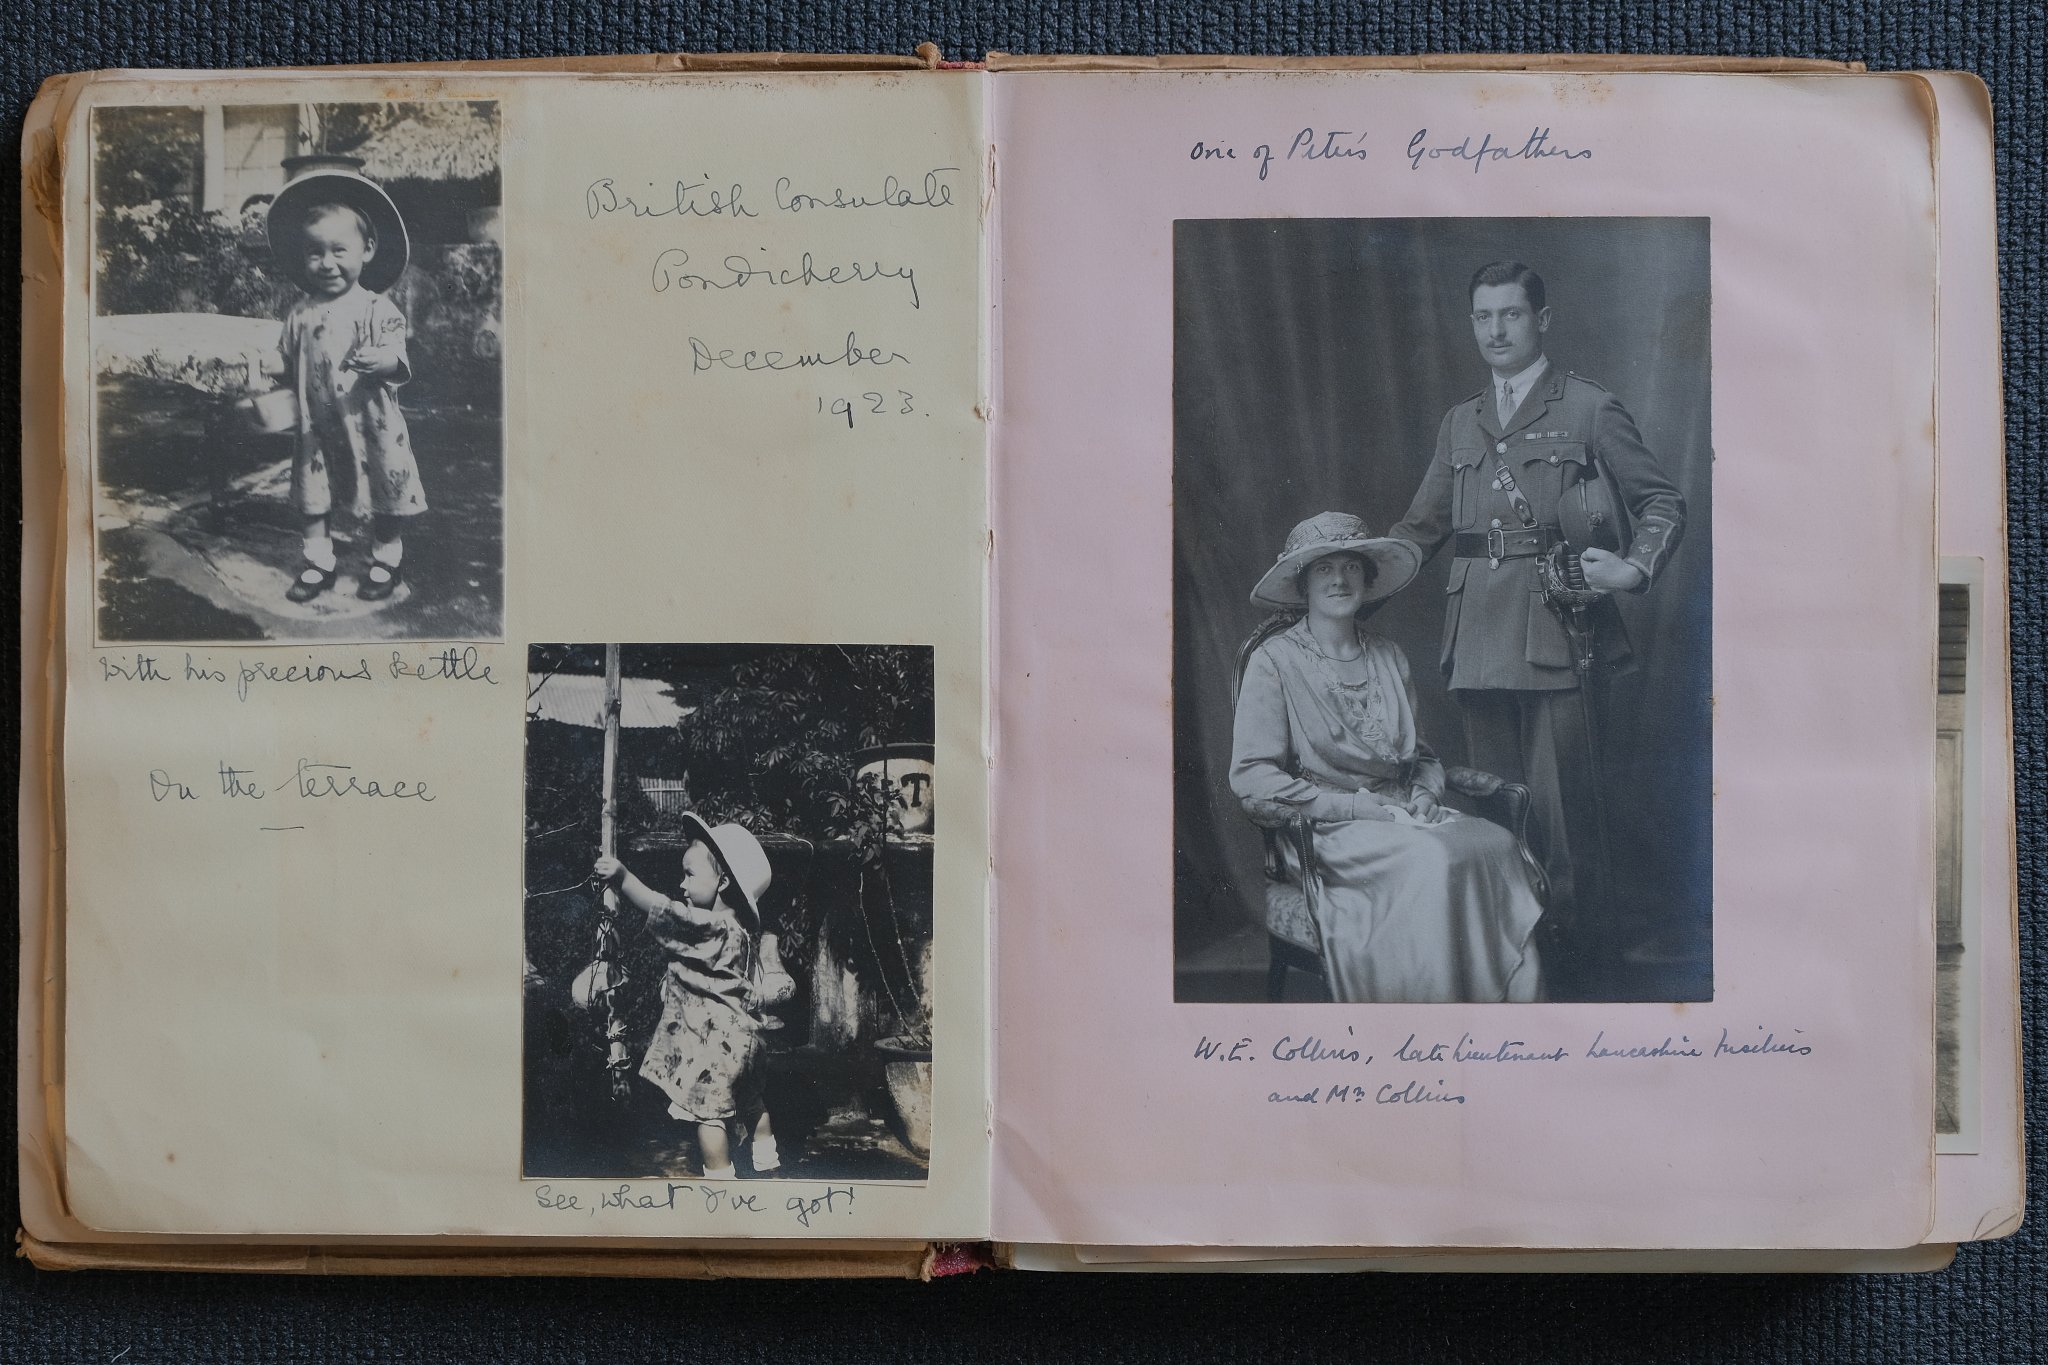 British Consulate
Pondicherry
December
1923.
with his precious kettle
On the terrace
See, what I've got!
One of Peter's Godfathers
W.E. Collins, late Lieutenant Lancashire Fusiliers
and Mrs Collins